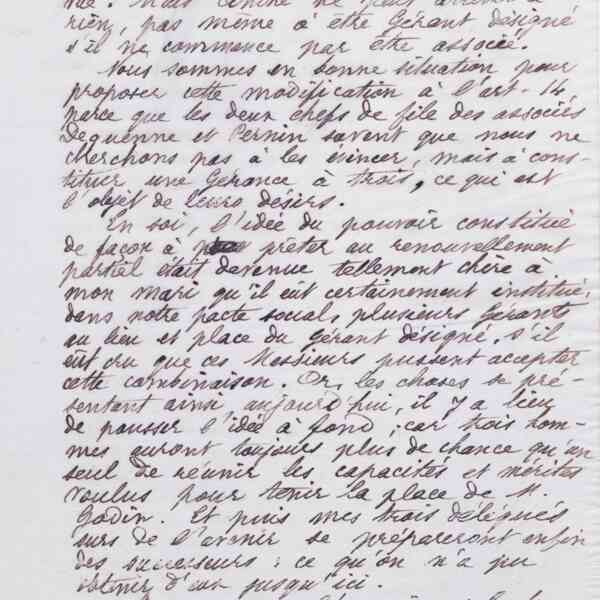 vue. Mais André ne peut arriver à
rien, pas même à être Gérant désigné
s'il ne commence par être associé.
Nous sommes en bonne situation pour
proposer cette modification à l'art. 14,
parce que les deux chefs de file des associés
Dequenne et Pernin savent que nous ne
cherchons pas à les évincer, mais à cons-
tituer une Gérance à trois, ce qui est
l'objet de leurs désirs.
En soi, l'idée du pouvoir constitué
de façon à prêter au renouvellement
partiel était devenue tellement chère à
mon mari qu'il eût certainement institué,
dans notre pacte social, plusieurs gérants
au lieu et place du gérant désigné, s'il
eût cru que ces Messieurs pussent accepter
cette combinaison. Or, les choses se pré-
sentant ainsi aujourd'hui, il y a lieu
de pousser l'idée à fond ; car trois hom-
mes auront toujours plus de chance qu'un
seul de réunir les capacités et mérites
voulus pour tenir la place de M.
Godin. Et puis mes trois délégués
surs de l'avenir se prépareront enfin
des successeurs : ce qu'on n'a pu
obtenir d'eux jusqu'ici.